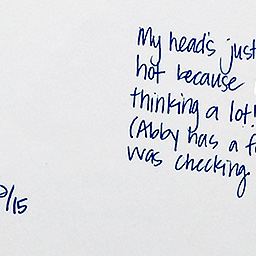 My head's just
hot because
thinking a lot!
(Abby has a
was checking
/15